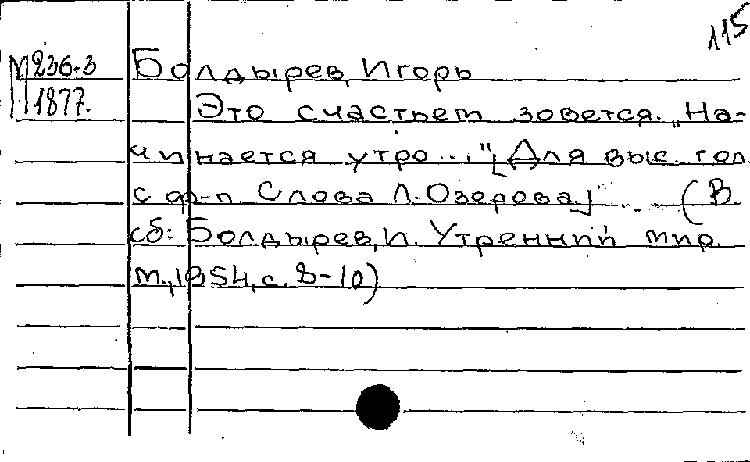 115
М236-3
1877.
Болдырев, Игорь
Это счастьем зовется. "На-
чинается утро..." [Для выс. гол.
с ф-п Слова Л. Озерова] (В
сб: Болдырев, И. Утренний мир.
М., 1954, с. 8-10)